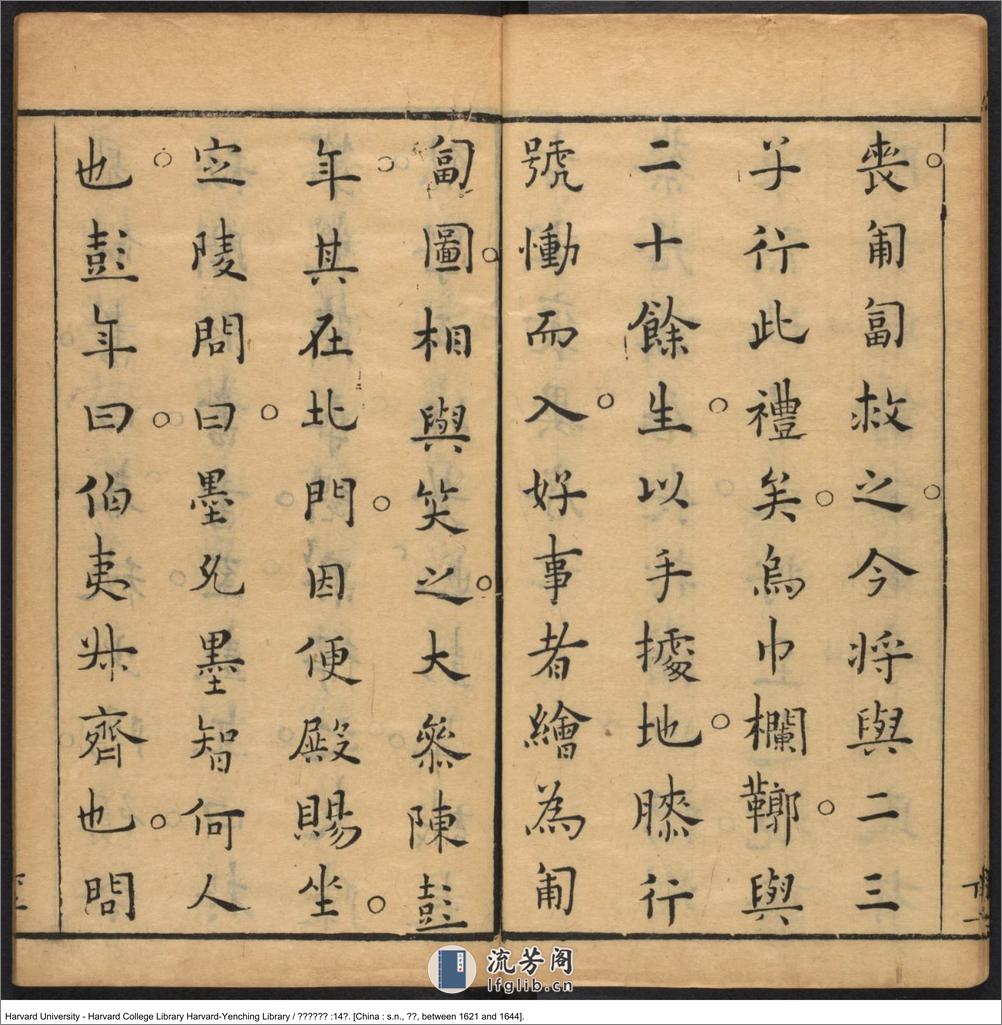 喪匍匐救之今將與二三
子行此禮矣烏巾欄鞹與
二十餘生以手據地膝行
號慟而入好事者繪為匍
匐圖相與笑之大參陳彭
年其在北門因便殿賜坐
定陵問曰墨允墨智何人
也彭年曰伯夷叔齊也問
流芳阁
lfglib.cn
Harvard University - Harvard College Library Harvard-Yenching Library / ?????? :14?. [China : s.n., ??, between 1621 and 1644].